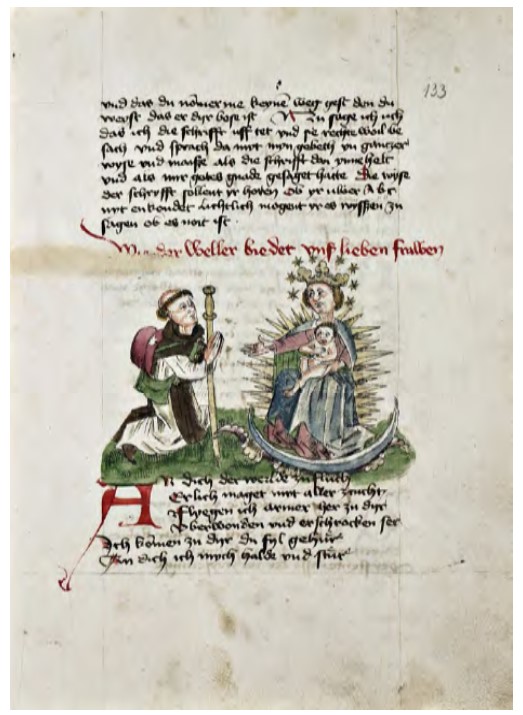 133
vnd das du nommer me keyne weg gest den du
weyst das er dyr bose ist Nu sage ich uch
das ich die schrifft uff tet vnd se rechte woil be
sach vnd sprach da mit myn gebeth yn gantzer
wyse vnd maisse als die schrifft den ynne helt
vnd als mir gotes gnade gesaget hatte die wyse
der schrifft sollent yr horen Ob yr uwer A b c
nyt enkondet lichtlich mogent yr es wyssen zu
sagen ob es noit ist
der weller biedet vnß lieben frauwen
AN dich der zufluch
Erlich maget mit aller zucht
Flyegen ich armer her zu dyr
Vberwonden vnd erschrocken ser
Ich komen zu dyr du
An dich ich mych halde vnd stur